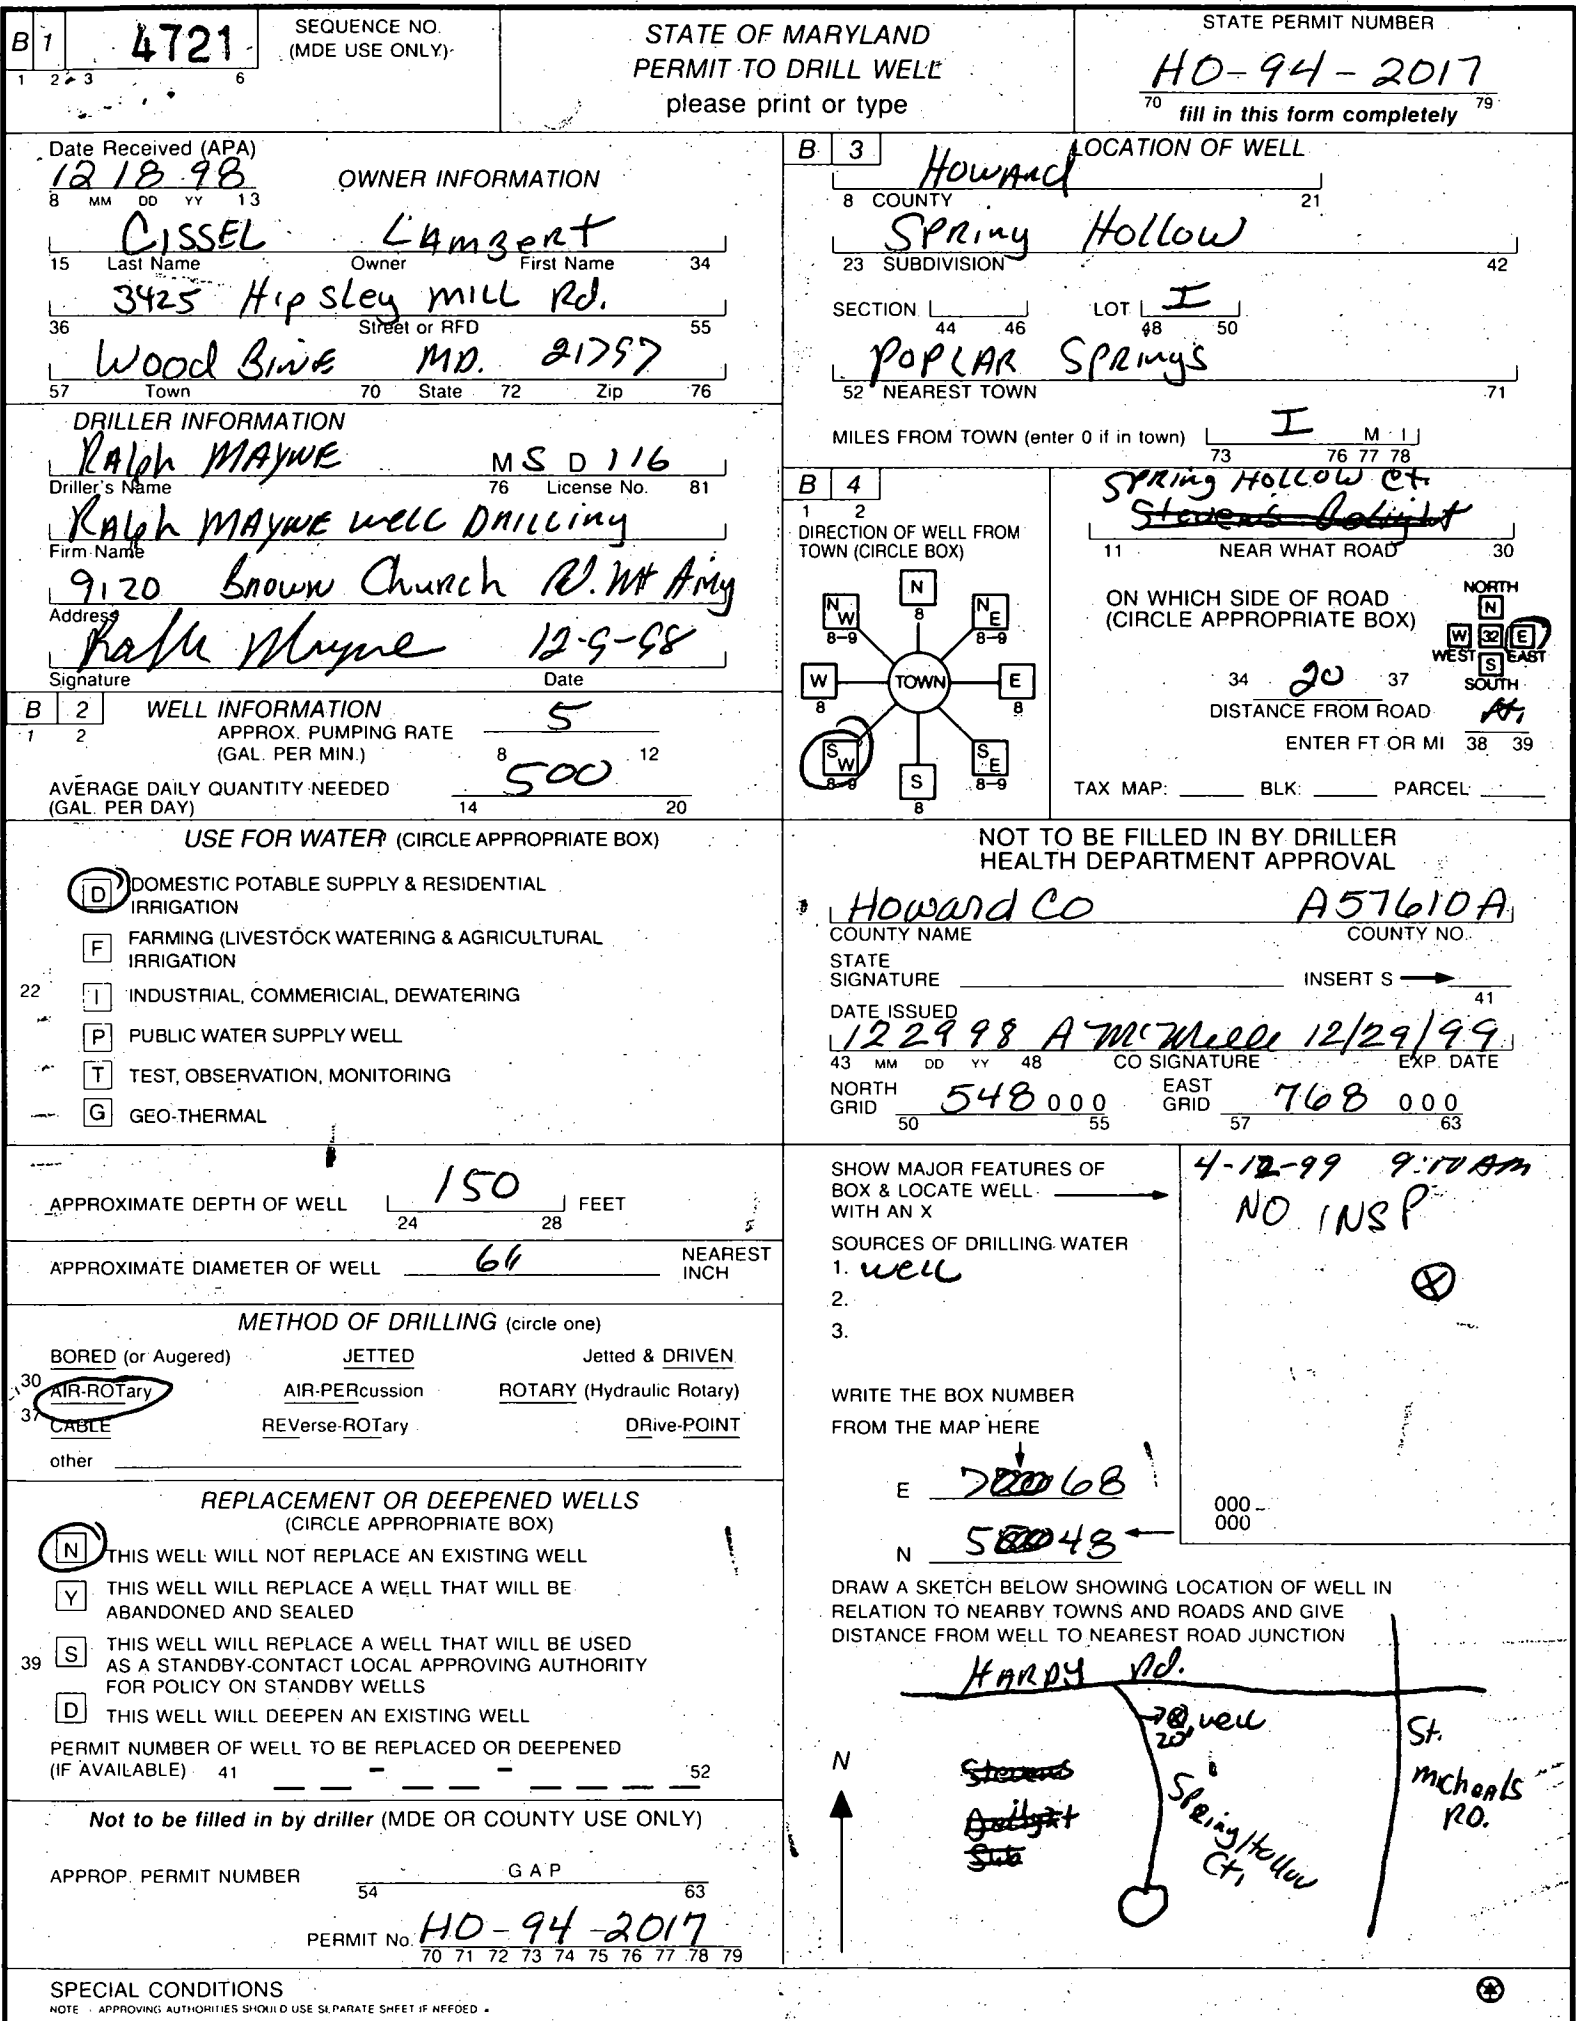 B 1 4721 SEQUENCE NO. (MDE USE ONLY)
1 2 3 6
STATE OF MARYLAND
PERMIT TO DRILL WELL
please print or type
STATE PERMIT NUMBER
HO-94-2017
70 fill in this form completely 79
Date Received (APA)
12 18 98
8 MM DD YY 13
OWNER INFORMATION
CISSEL LAmBerT
15 Last Name Owner First Name 34
3425 Hipsley MILL Rd.
36 Street or RFD 55
Wood BINE MD. 21797
57 Town 70 State 72 Zip 76
DRILLER INFORMATION
RAlph MAYNE M S D 116
Driller's Name 76 License No. 81
RAlph MAYNE well DRILLING
Firm Name
9120 Brown Church Rd. Mt Airy
Address
Ralph Mayne 12-9-98
Signature Date
B 2 WELL INFORMATION
1 2
APPROX. PUMPING RATE (GAL. PER MIN.) 5
8 12
AVERAGE DAILY QUANTITY NEEDED (GAL. PER DAY) 500
14 20
USE FOR WATER (CIRCLE APPROPRIATE BOX)
D DOMESTIC POTABLE SUPPLY & RESIDENTIAL
IRRIGATION
F FARMING (LIVESTOCK WATERING & AGRICULTURAL
IRRIGATION
22 I INDUSTRIAL, COMMERICIAL, DEWATERING
P PUBLIC WATER SUPPLY WELL
T TEST, OBSERVATION, MONITORING
G GEO-THERMAL
APPROXIMATE DEPTH OF WELL 150 FEET
24 28
APPROXIMATE DIAMETER OF WELL 6" NEAREST INCH
METHOD OF DRILLING (circle one)
BORED (or Augered) JETTED Jetted & DRIVEN
30 AIR-ROTary AIR-PERcussion ROTARY (Hydraulic Rotary)
37 CABLE REVerse-ROTary DRive-POINT
other
REPLACEMENT OR DEEPENED WELLS
(CIRCLE APPROPRIATE BOX)
N THIS WELL WILL NOT REPLACE AN EXISTING WELL
Y THIS WELL WILL REPLACE A WELL THAT WILL BE
ABANDONED AND SEALED
39 S THIS WELL WILL REPLACE A WELL THAT WILL BE USED
AS A STANDBY-CONTACT LOCAL APPROVING AUTHORITY
FOR POLICY ON STANDBY WELLS
D THIS WELL WILL DEEPEN AN EXISTING WELL
PERMIT NUMBER OF WELL TO BE REPLACED OR DEEPENED
(IF AVAILABLE) 41 - - 52
Not to be filled in by driller (MDE OR COUNTY USE ONLY)
APPROP. PERMIT NUMBER G A P
54 63
PERMIT No. HO-94-2017
70 71 72 73 74 75 76 77 78 79
B 3 LOCATION OF WELL
Howard
8 COUNTY 21
SPRing Hollow
23 SUBDIVISION 42
SECTION LOT I
44 46 48 50
POPLAR SPRings
52 NEAREST TOWN 71
MILES FROM TOWN (enter 0 if in town) I M I
73 76 77 78
B 4
1 2
DIRECTION OF WELL FROM
TOWN (CIRCLE BOX)
N 8
NW 8-9 NE 8-9
W 8 TOWN E 8
SW 8-9 SE 8-9
S 8
SPRing HOLLOW Ct.
Stevens Delight
11 NEAR WHAT ROAD 30
ON WHICH SIDE OF ROAD
(CIRCLE APPROPRIATE BOX)
NORTH
N
W 32 E
WEST S EAST
SOUTH
34 20 37
DISTANCE FROM ROAD
ENTER FT OR MI ft.
38 39
TAX MAP: BLK: PARCEL
NOT TO BE FILLED IN BY DRILLER
HEALTH DEPARTMENT APPROVAL
Howard Co A57610A
COUNTY NAME COUNTY NO.
STATE
SIGNATURE INSERT S
41
DATE ISSUED
122998 A McMille 12/29/99
43 MM DD YY 48 CO SIGNATURE EXP. DATE
NORTH GRID 548 000 EAST GRID 768 000
50 55 57 63
SHOW MAJOR FEATURES OF
BOX & LOCATE WELL
WITH AN X
4-12-99 9:10 AM
NO INSP
X
SOURCES OF DRILLING WATER
1. well
2.
3.
WRITE THE BOX NUMBER
FROM THE MAP HERE
E 7 68
N 5 48
000
000
DRAW A SKETCH BELOW SHOWING LOCATION OF WELL IN
RELATION TO NEARBY TOWNS AND ROADS AND GIVE
DISTANCE FROM WELL TO NEAREST ROAD JUNCTION
HARDY Rd.
well
20'
N
Stevens
Delight
Sub
Spring Hollow
Ct.
St.
Michaels
RD.
SPECIAL CONDITIONS
NOTE APPROVING AUTHORITIES SHOULD USE SEPARATE SHEET IF NEEDED